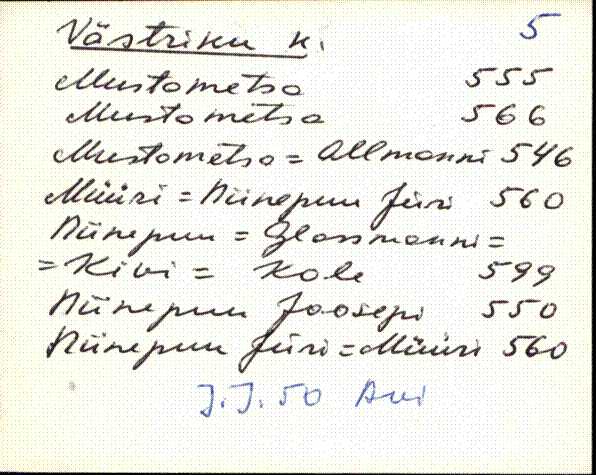 Västriku k. 5
Mustametsa 555
Mustametsa 566
Mustametsa = Allmanni 546
Müüri = Niinepuu Jüri 560
Niinepuu = Glasmanni =
= Kivi = Kole 599
Niinepuu Joosepi 550
Niinepuu Jüri = Müüri 560
J.J. 50 Avi